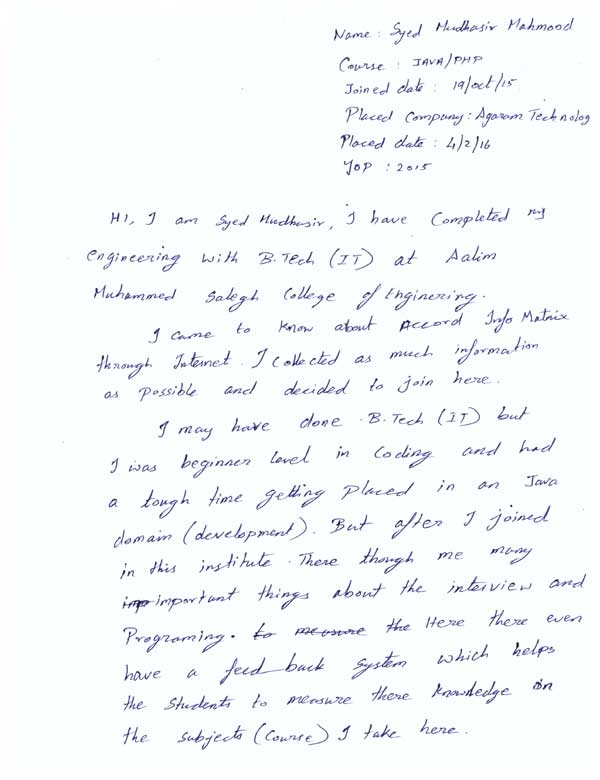 Name: Syed Mudhasir Mahmood
Course : JAVA/PHP
Joined date : 19/oct/15
Placed Company: Agaram Technolog
Placed date : 4/2/16
YOP : 2015
HI, I am Syed Mudhasir, I have Completed my
engineering with B.Tech (IT) at Aalim
Muhammed Salegh College of Enginering.
I came to know about Accord Info Matrix
through Internet. I collected as much information
as possible and decided to join here.
I may have done B.Tech (IT) but
I was beginner level in Coding and had
a tough time getting Placed in an Java
domain (development). But after I joined
in this institute. There though me many
imp important things about the interview and
Programing. to measure the Here there even
have a feed back System which helps
the Students to measure there knowledge on
the subjects (Course) I take here.